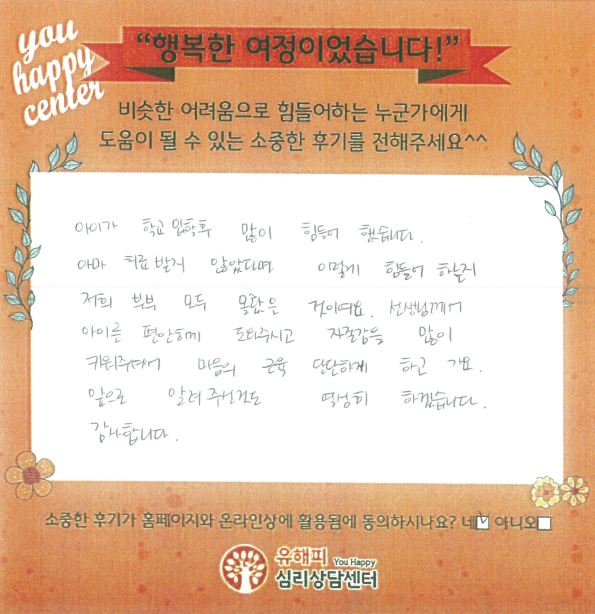 you
happy
center
“행복한 여정이었습니다!”
비슷한 어려움으로 힘들어하는 누군가에게
도움이 될 수 있는 소중한 후기를 전해주세요^^
아이가 학교 입학후 많이 힘들어 했습니다.
아마 치료 받지 않았다면 이렇게 힘들어 하는지
저희 부부 모두 몰랐을 것이에요. 선생님께서
아이를 편안하게 도와주시고 자존감을 많이
키워주셔서 마음의 근육 단단하게 하고 가요.
앞으로 알려주신것도 열심히 하겠습니다.
감사합니다.
소중한 후기가 홈페이지와 온라인상에 활용됨에 동의하시나요? 네☑ 아니오☐
유해피 You Happy
심리상담센터